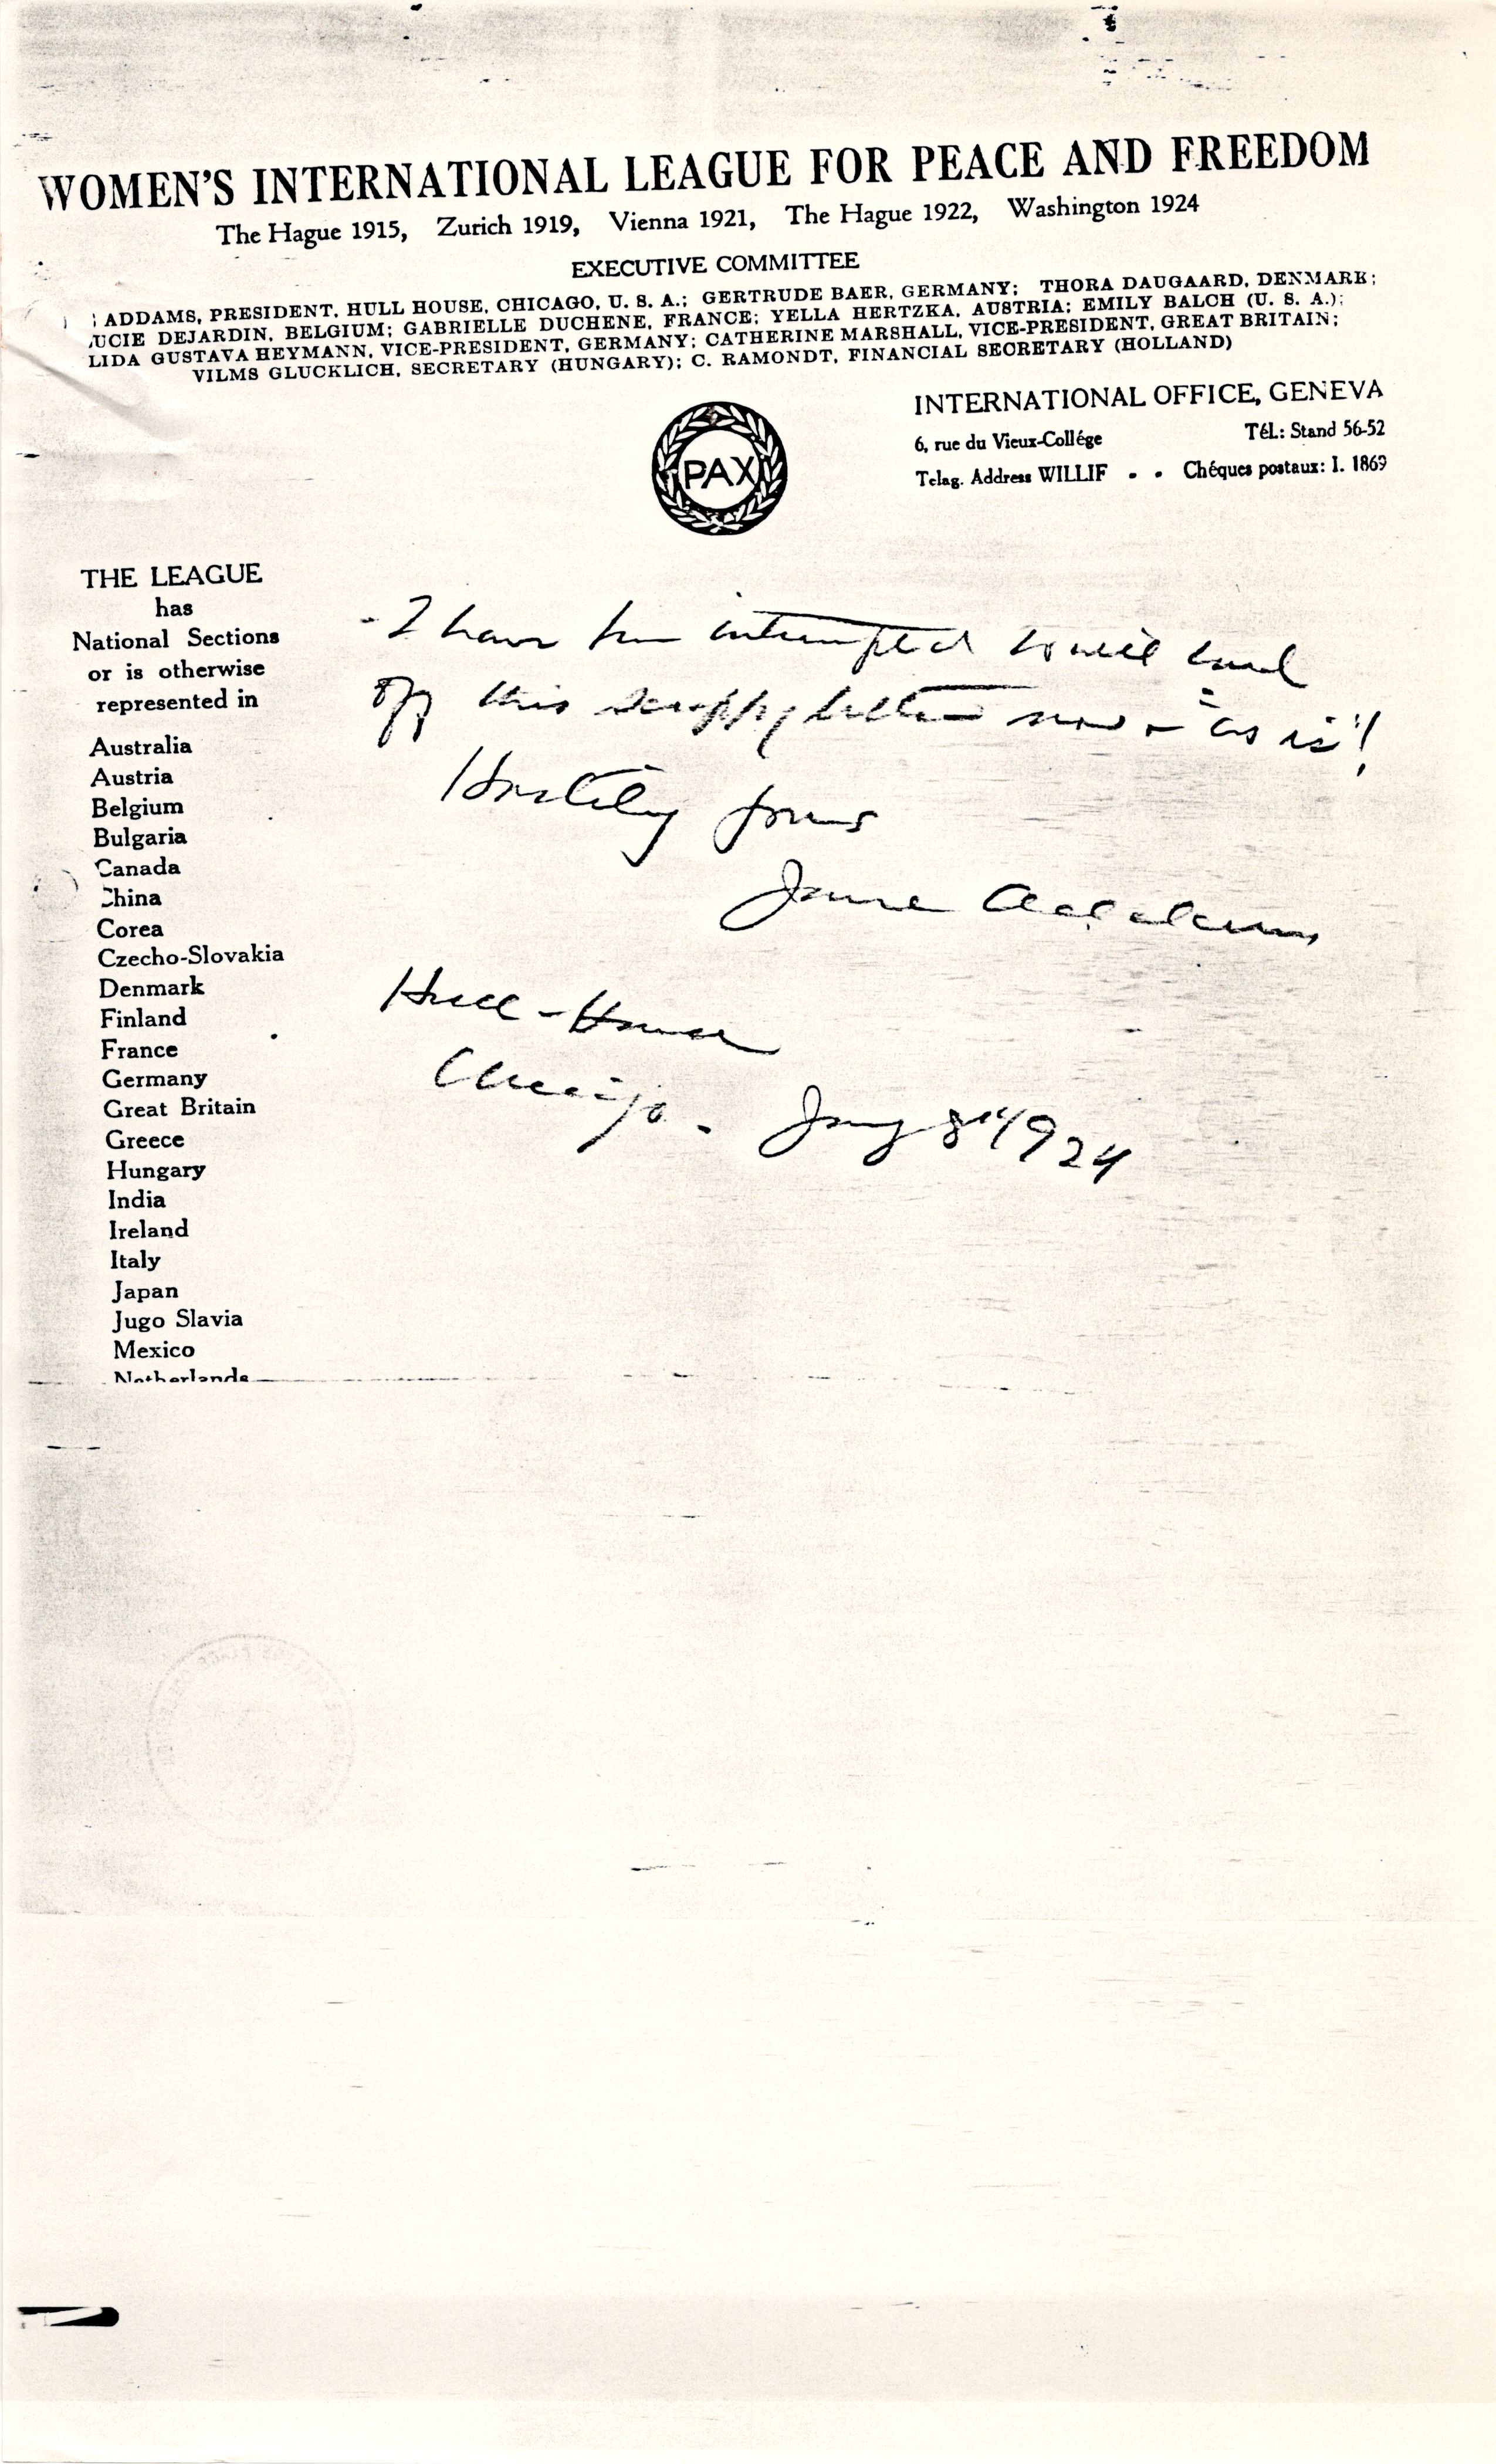 WOMEN'S INTERNATIONAL LEAGUE FOR PEACE AND FREEDOM
The Hague 1915, Zurich 1919, Vienna 1921, The Hague 1922, Washington 1924
EXECUTIVE COMMITTEE
ADDAMS, PRESIDENT, HULL HOUSE, CHICAGO, U. S. A.; GERTRUDE BAER, GERMANY; THORA DAUGAARD, DENMARK;
UCIE DEJARDIN, BELGIUM; GABRIELLE DUCHENE, FRANCE; YELLA HERTZKA, AUSTRIA; EMILY BALCH (U. S. A.);
LIDA GUSTAVA HEYMANN, VICE-PRESIDENT, GERMANY; CATHERINE MARSHALL, VICE-PRESIDENT, GREAT BRITAIN;
VILMS GLUCKLICH, SECRETARY (HUNGARY); C. RAMONDT, FINANCIAL SECRETARY (HOLLAND)
INTERNATIONAL OFFICE, GENEVA
6, rue du Vieux-Collége TéL: Stand 56-52
Telag. Address WILLIF . . Chéques postaux: I. 1869
PAX
THE LEAGUE
has
National Sections
or is otherwise
represented in
Australia
Austria
Belgium
Bulgaria
Canada
China
Corea
Czecho-Slovakia
Denmark
Finland
France
Germany
Great Britain
Greece
Hungary
India
Ireland
Italy
Japan
Jugo Slavia
Mexico
Netherlands
- I have been interrupted so will send
off this scrappy letter now - "as is"!
Hastily yours
Jane Addams
Hull-House
Chicago - Jany 8" 1924